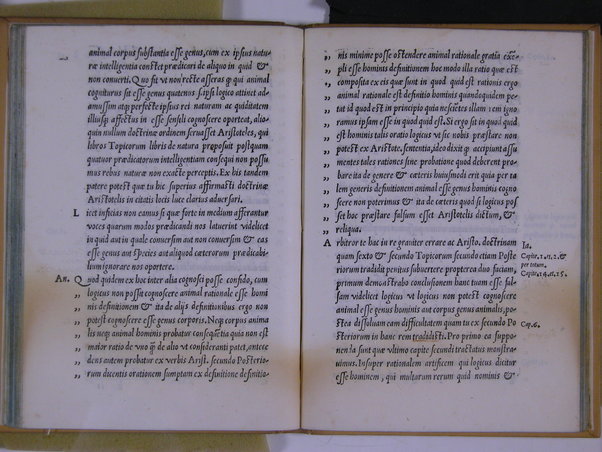 animal corpus substantia esse genus, cum ex ipsius natu
ræ intelligentia constet prædicari de aliquo in quid &
non conuerti. Quo fit vt non recte asseras quod qui animal
cogniturus sit esse genus quatenus s. ipsi logico attinet ad
amussim atque perfecte ipsius rei naturam ac quiditatem
illius affectus in esse senseli cognoscere oporteat, alio-
quin nullum doctrinæ ordinem seruasset Aristoteles, qui
libros Topicorum libris de natura preposuit postquam
quatuor prædicatorum intelligentiam consequi non possu
mus rebus naturæ non exacte perceptis. Ex his tandem
patere potest quæ tu hic superius affirmasti doctrinæ
Aristotelis in citatis locis luce clarius aduersari.
L icet inficias non eamus si quæ forte in medium afferantur
voces quarum modos prædicandi nos latuerint videlicet
in quid aut in quale conuersim aut non conuersim & eas
esse genus aut species aut aliquod cæterorum prædicabi-
lium ignorare nos oportere.
An. Q uod quidem ex hoc inter alia cognosci posse confido, cum
„ logicus non possit cognoscere animal rationale esse homi
„ nis definitionem & ita de alijs definitionibus ergo non
„ potest cognoscere esse genus corporis. Neque corpus anima
„ lis neque animal hominis probatur consequentia quia non est
„ maior ratio de vno quam de alio vt consideranti patet, antece
„ dens autem probatur ex verbis Arist. secundo Posterio-
„ rum dicentis orationem sumptam ex definitione definitio-
„ nis minime posse ostendere animal rationale gratia exem-
„ pli esse hominis definitionem hoc modo illa ratio quæ est
„ composita ex eis quæ sunt in quod quid est rationis ergo
„ animal rationale est definitio hominis quandoquidem pe-
„ tat id quod est in principio quia nescientes illam rem igno
„ ramus ipsam esse in quod quid est. Si ergo sit in quod quid
„ est hominis talis oratio logicus vt sic nobis præstare non
„ potest ex Aristote. sententia, ideo dixit quod accipiunt assu
„ mentes tales rationes sine probatione quod deberent pro-
„ bare ita de genere & cæteris huiusmodi erit quia per ta
„ lem generis definitionem animal esse genus hominis cogno
„ scere non poterimus & ita de cæteris quod si logicus pos
„ set hoc præstare falsum esset Aristotelis dictum, &
„ reliqua.
A rbitror te hac in re grauiter errare ac Aristo. doctrinam
quam sexto & secundo Topicorum secundo etiam Poste
riorum tradidit penitus subuertere propterea duo faciam,
primum demonstrabo conclusionem hanc tuam esse fal-
sam videlicet logicus vt logicus non potest cognoscere
animal esse genus hominis aut corpus genus animalis, po-
stea dissoluam eam difficultatem quam tu ex secundo Po
steriorum in hanc rem tradidisti. Pro primo ea suppo-
nenda sunt quæ vltimo capite secundi tractatus monstra-
uimus. Insuper rationalem artificem qui logicus dicitur
esse hominem, qui multarum rerum quid nominis &
Ia.
Capite. 1. & 2. &
per totum,
Capite, 14. & 15.
Cap. 6.